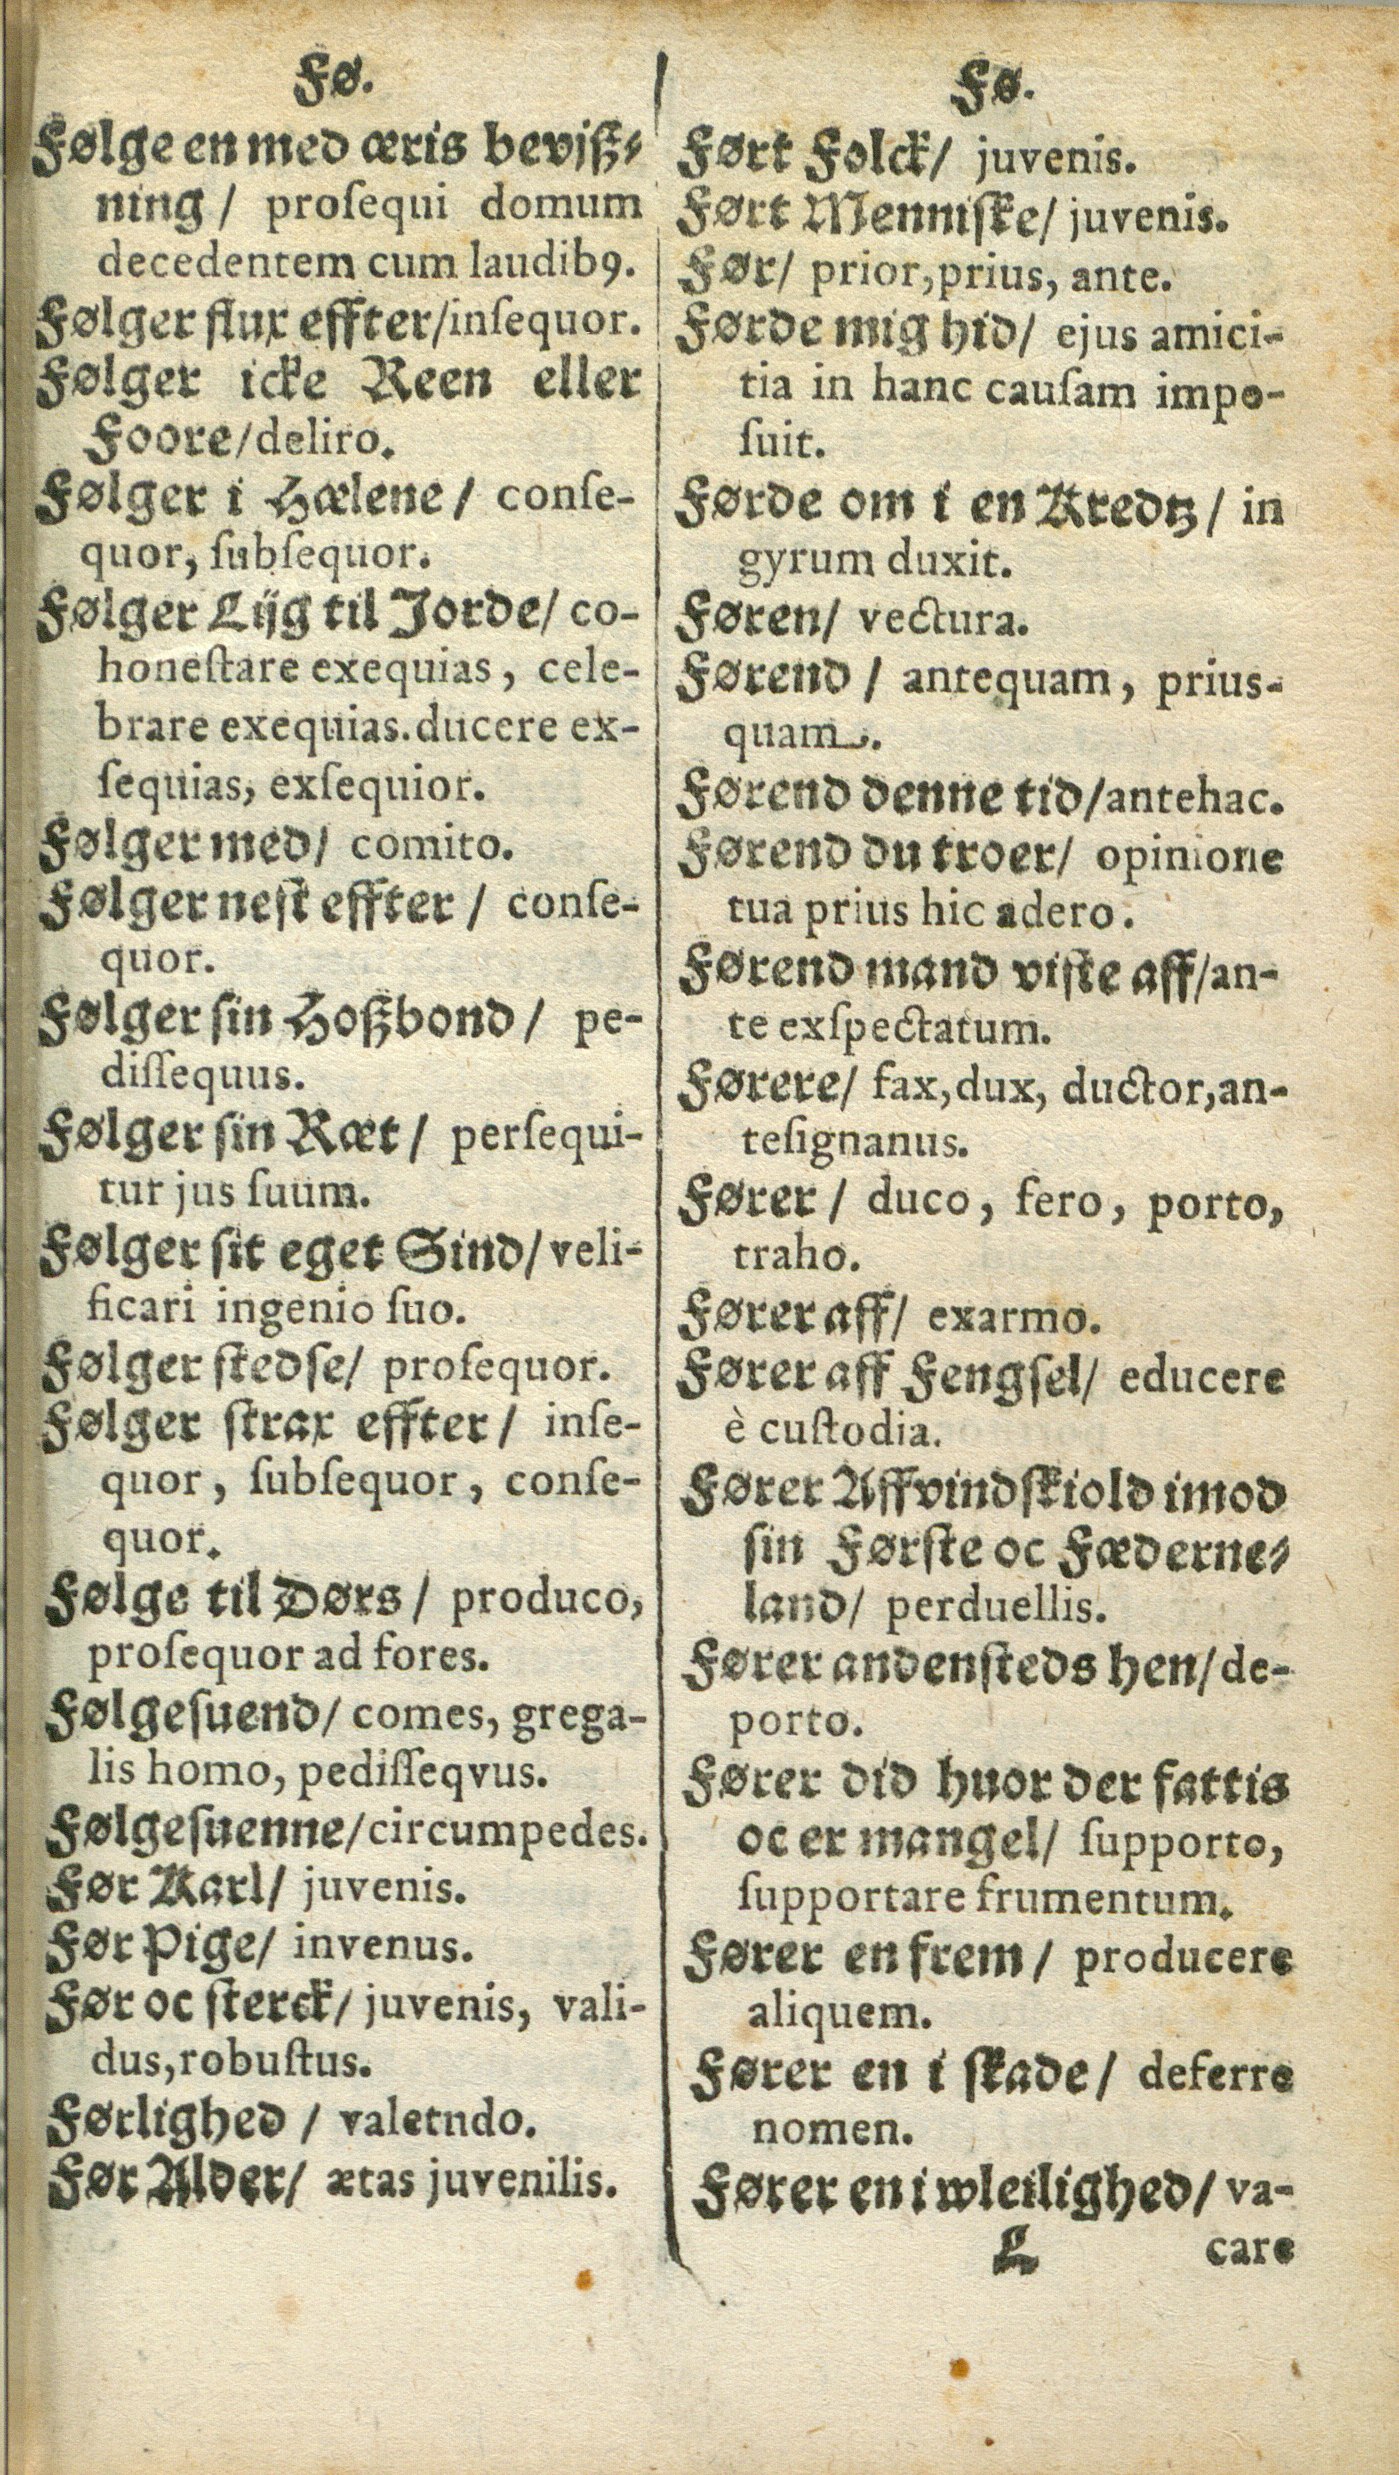 Fø.
Følge en med æris bevjſz⸗
ning / proſequi domum
decedentem cum laudibꝰ.
Følger flux effter/inſequor.
Følger icke Reen eller
Foore/deliro.
Følger i Hælene / conſe-
quor, ſubſequor.
Følger Lijg til Jorde/ co-
honeſtare exequias, cele-
brare exequias.ducere ex-
ſequias, exſequior.
Følger med/ comito.
Følger neſt effter / conſe-
quor.
Følger ſin Hoſzbond / pe-
diſſequus.
Følger ſin Ræt / perſequi-
tur jus ſuum.
Følger ſit eget Sind/ veli-
ficari ingenio ſuo.
Følger ſtedſe/ proſequor.
Følger ſtrax effter / inſe-
quor, ſubſequor, conſe-
quor.
Følge til Dørs / produco,
proſequor ad fores.
Følgeſuend/ comes, grega-
lis homo, pediſſeqvus.
Følgeſuenne/circumpedes.
Før Karl/ juvenis.
Før Pige/ invenus.
Før oc ſterck/ juvenis, vali-
dus,robuſtus.
Førlighed / valetndo.
Før Alder/ ætas juvenilis.
Fø.
Ført Folck/ juvenis.
Ført Menniſke/ juvenis.
Før/ prior,prius, ante.
Førde mig hid/ ejus amici-
tia in hanc cauſam impo-
ſuit.
Førde om i en Kredtz / in
gyrum duxit.
Føren/ vectura.
Førend / antequam, prius-
quam.
Førend denne tid/antehac.
Førend du troer/ opinione
tua prius hic adero.
Førend mand viſte aff/an-
te exſpectatum.
Førere/ fax,dux, ductor,an-
teſignanus.
Fører / duco, fero, porto,
traho.
Fører aff/ exarmo.
Fører aff Fengſel/ educere
è cuſtodia.
Fører Affvindſkiold imod
ſin Førſte oc Fæderne⸗
land/ perduellis.
Fører andenſteds hen/ de-
porto.
Fører did huor der fattis
oc er mangel/ ſupporto,
ſupportare frumentum.
Fører en frem / producere
aliquem.
Fører en i ſkade/ deferre
nomen.
Fører en i wleilighed/ va-
L care